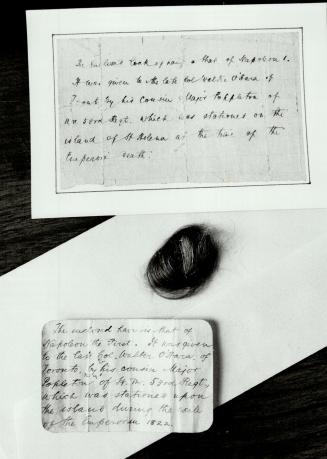 The enclosed lock of hair is that of Napoleon I.
It was given to the late Col Walter O'Hara of
Toronto by his cousin Major Poppleton of
53rd Regt. which was stationed on the
island of St Helena at the time of the
Emperor's death.
The enclosed hair is that of
Napoleon the First. It was given
to the late Col. Walter O'Hara, of
Toronto, by his cousin Major
Poppleton of H. M. 53rd Regt,
which was stationed upon
the island during the exile
of the Emperor in 1822